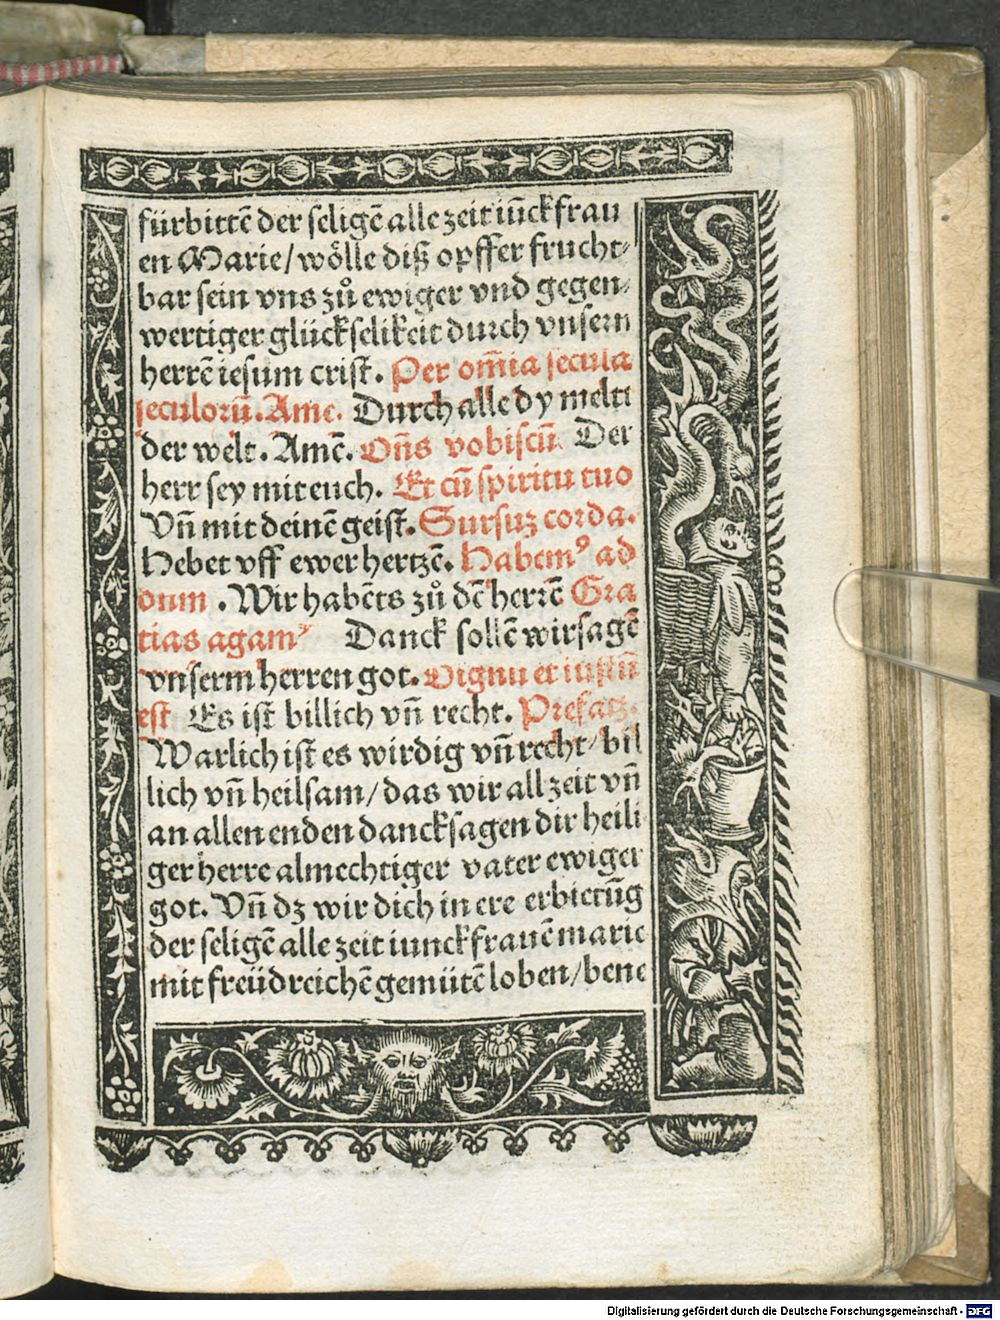 fürbittē der seligē alle zeit iūckfrau
en Marie/ wölle diß opffer frucht⸗
bar sein vns zů ewiger vnd gegen⸗
wertiger glückselikeit durch vnsern
herrē iesum crist. Per om̄ia secula
seculorū. Amē. Durch alle dy welt
der welt. Amē. Dn̄s vobiscū Der
herr sey mit euch. Et cū spiritu tuo
Vn̄ mit deinē geist. Sursuꝫ corda.
Hebet vff ewer hertzē. Habemꝰ ad
dnm . Wir habēts zů dē herrē Gra
tias agamꝰ Danck sollē wir sagē
vnserm herren got. Dignū et iustū
est Es ist billich vn̄ recht. Prefatz.
Warlich ist es wirdig vn̄ recht/ bil
lich vn̄ heilsam/ das wir all zeit vn̄
an allen enden dancksagen dir heili
ger herre almechtiger vater ewiger
got. Vn̄ dꝫ wir dich in ere erbietūg
der seligē alle zeit iunckfrauē marie
mit freüdreichē gemütē loben/ bene
Digitalisierung gefördert durch die Deutsche Forschungsgemeinschaft - DFG